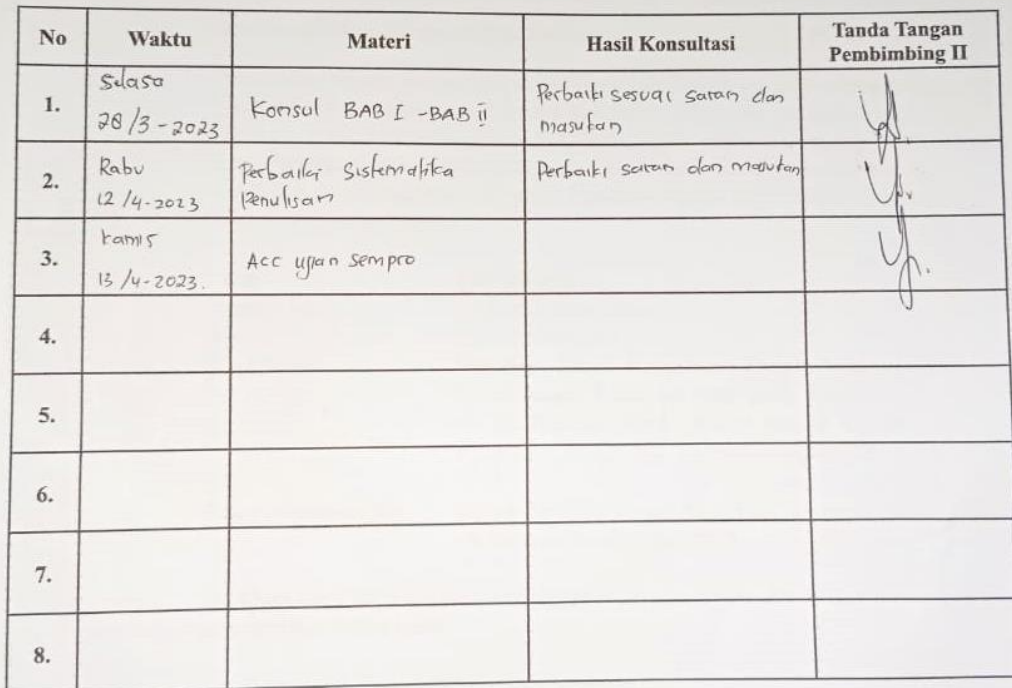 No Waktu Materi Hasil Konsultasi Tanda Tangan
Pembimbing II
1. Selasa
28/3-2023
Konsul BAB I - BAB II
Perbaiki sesuai saran dan
masukan
2. Rabu
12/4-2023
Perbaiki Sistematika
Penulisan
Perbaiki saran dan masukan
3. Kamis
13/4-2023.
Acc ujian sempro
4.
5.
6.
7.
8.